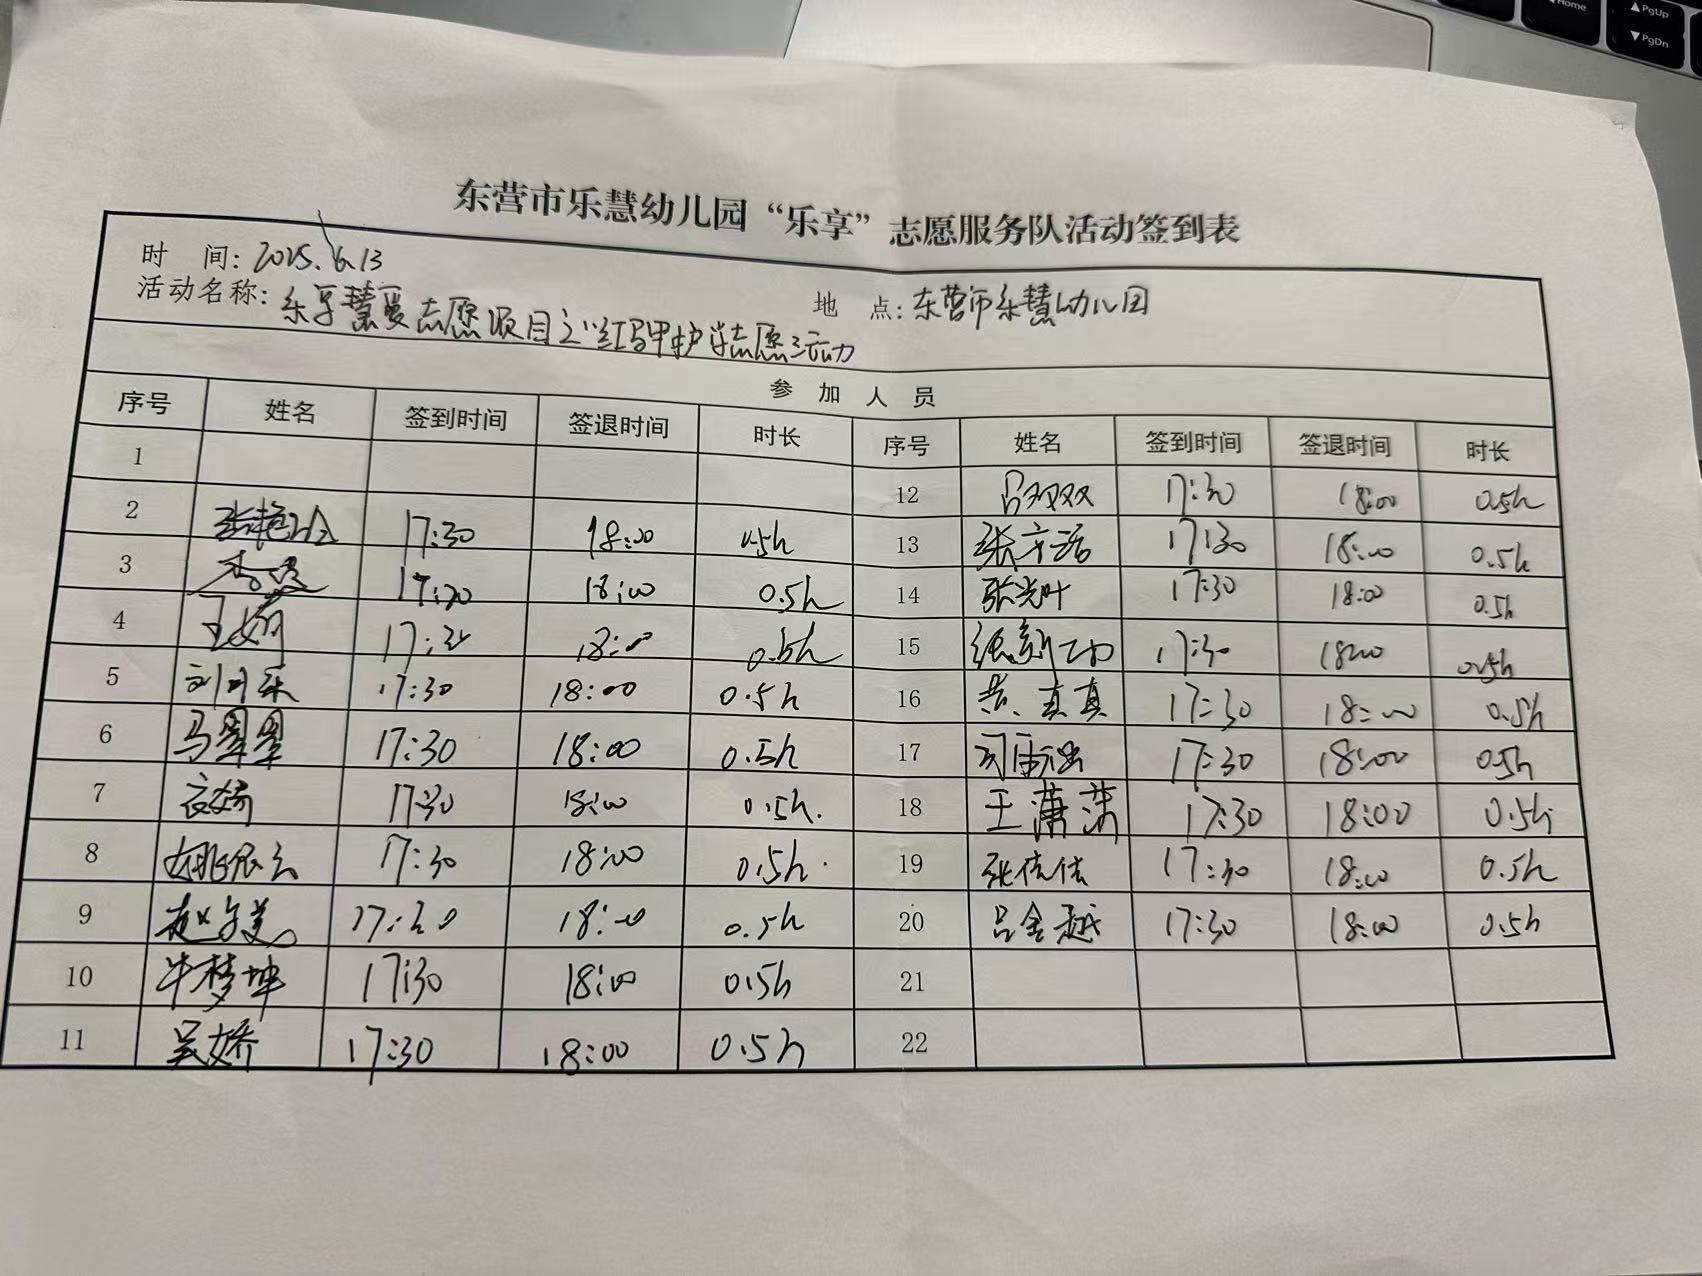 Home
PgUp
PgDn
东营市乐慧幼儿园“乐享”志愿服务队活动签到表
时 间: 2025.6.13
地 点: 东营市乐慧幼儿园
活动名称: 乐享慧爱志愿项目之“红马甲护学志愿活动
参 加 人 员
序号 姓名 签到时间 签退时间 时长 序号 姓名 签到时间 签退时间 时长
1 12 吕双双 17:30 18:00 0.5h
2 17:30 18:00 0.5h 13 张 17:30 18:00 0.5h
3 17:30 18:00 0.5h 14 张光叶 17:30 18:00 0.5h
4 王娇 17:30 18:00 0.5h 15 17:30 18:00 0.5h
5 刘 17:30 18:00 0.5h 16 黄真真 17:30 18:00 0.5h
6 马翠翠 17:30 18:00 0.5h 17 17:30 18:00 0.5h
7 17:30 18:00 0.5h. 18 王潇潇 17:30 18:00 0.5h
8 姚 17:30 18:00 0.5h. 19 张佳佳 17:30 18:00 0.5h
9 赵 17:30 18:00 0.5h 20 吕金越 17:30 18:00 0.5h
10 牛梦坤 17:30 18:00 0.5h 21
11 吴娇 17:30 18:00 0.5h 22